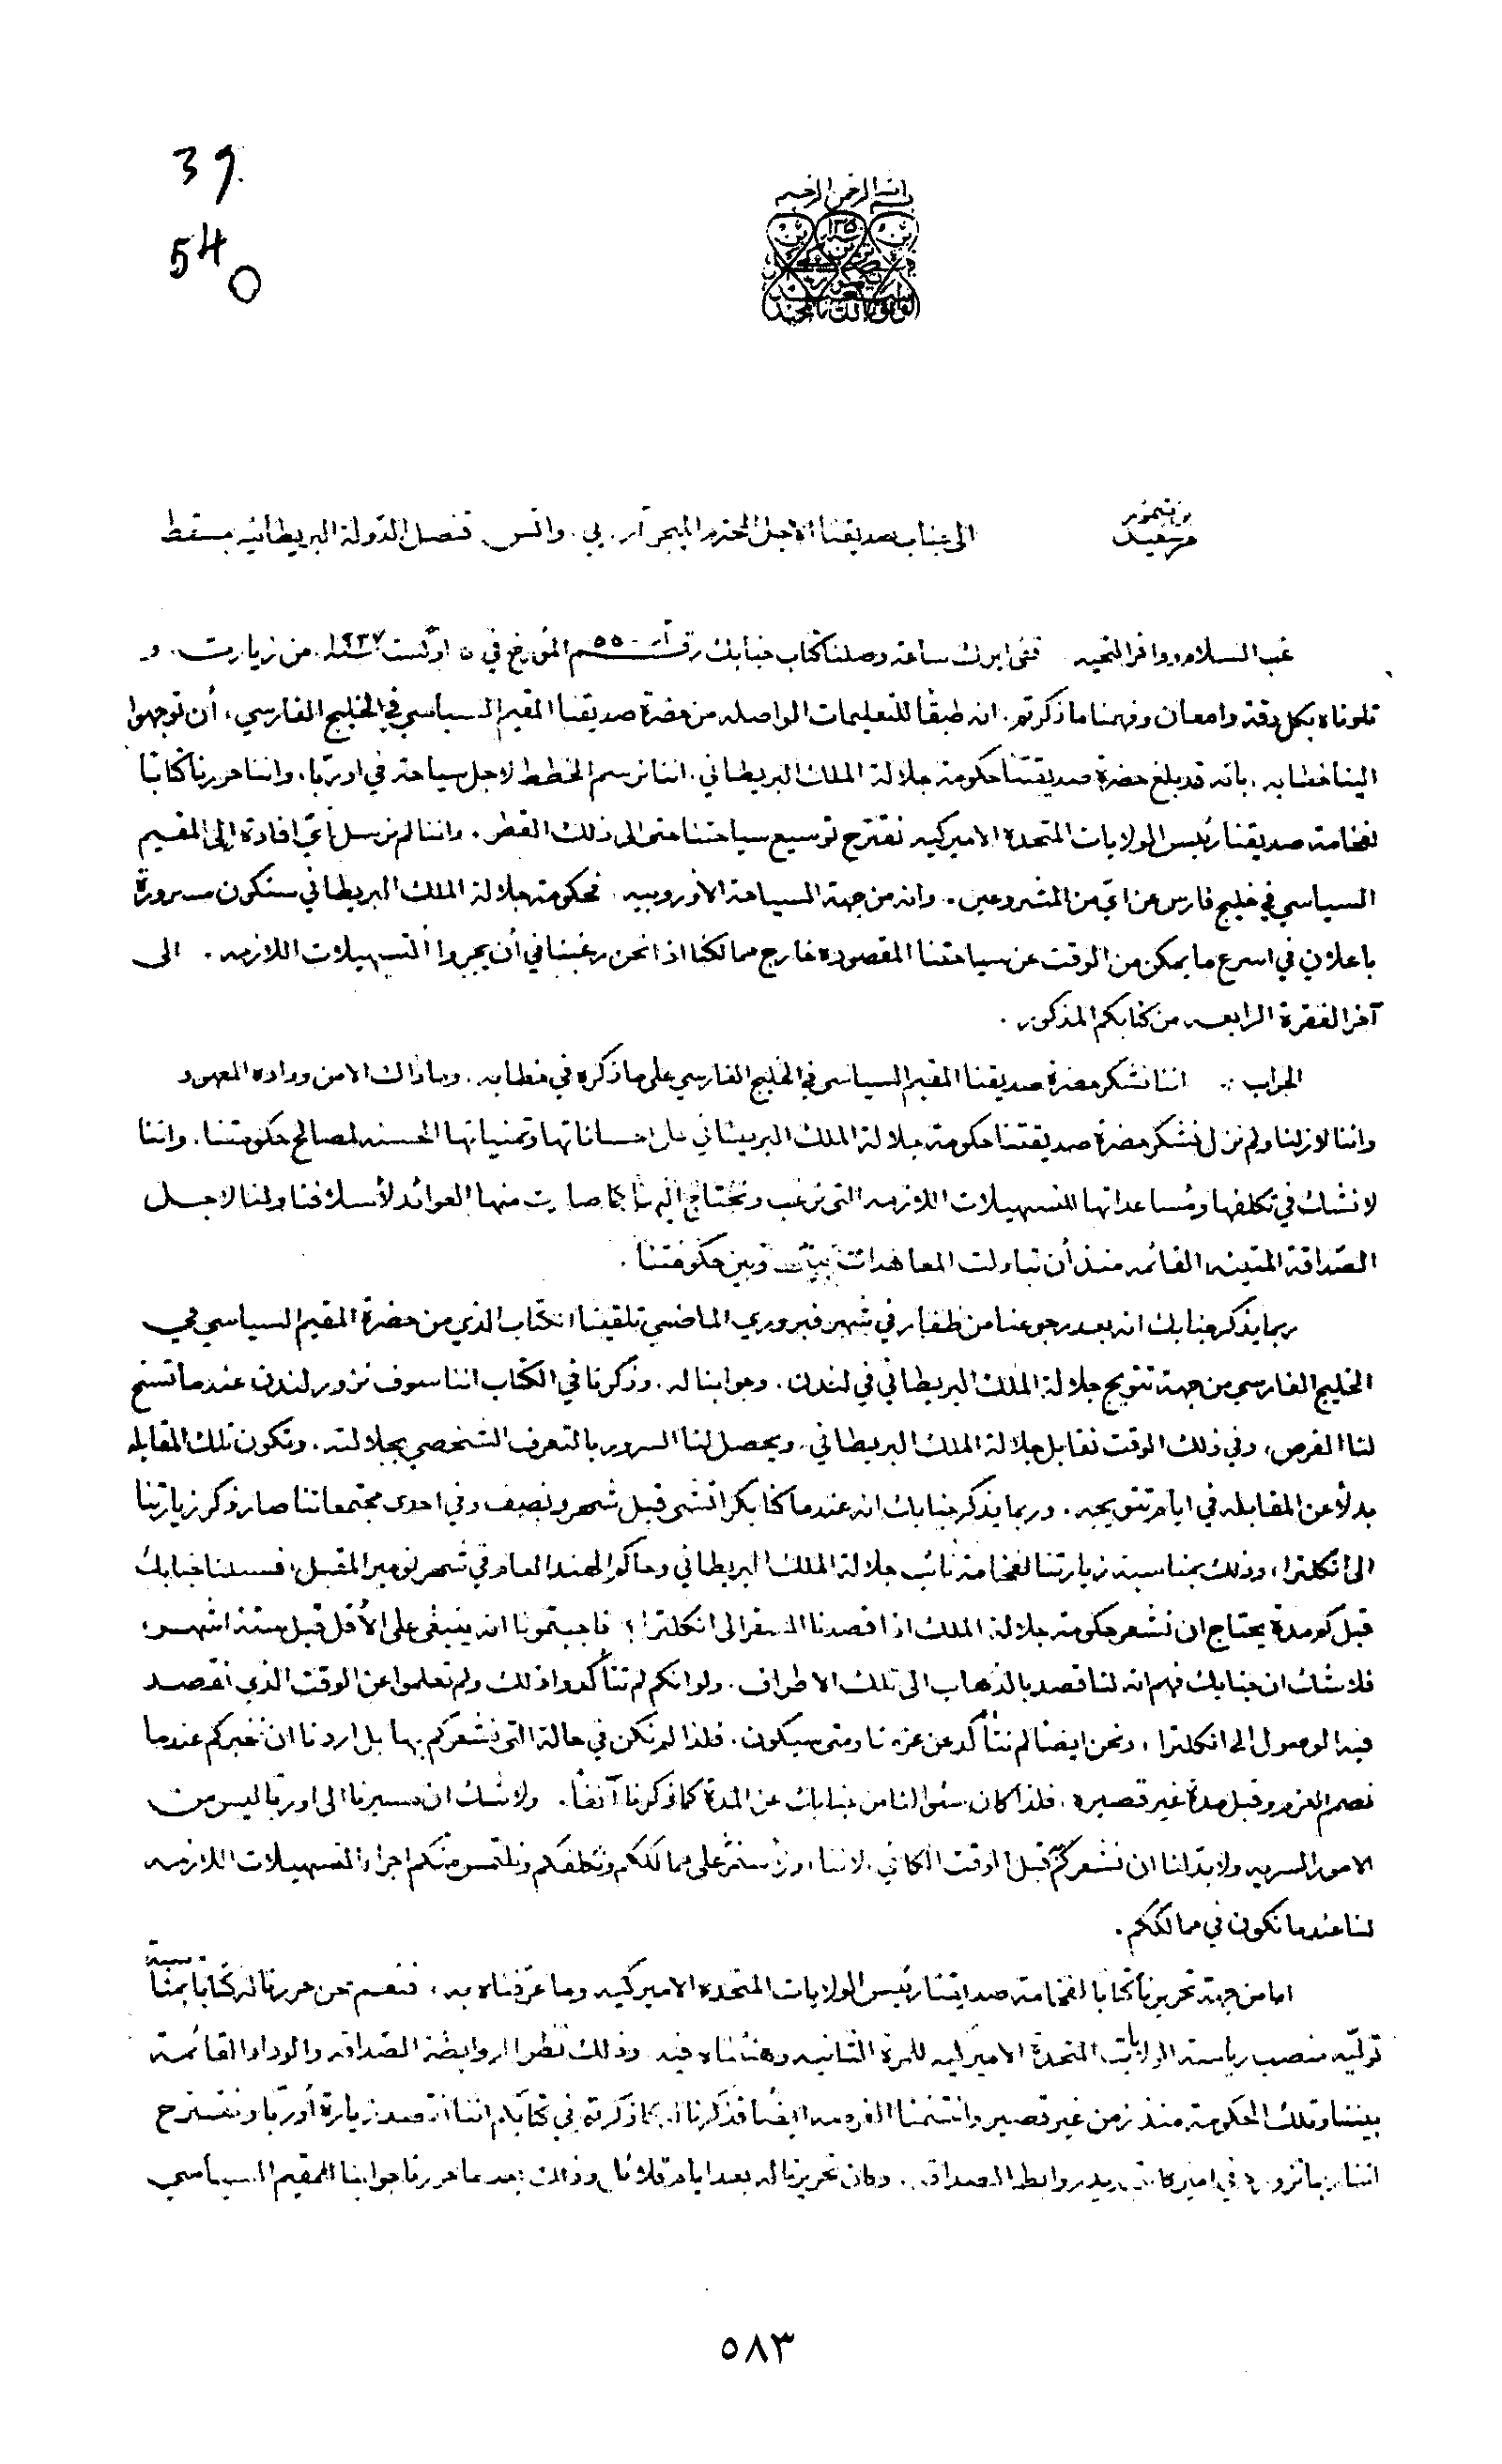 39.
540
بسم الله الرحمن الرحيم
من سعيد بن تيمور
الى جناب صديقنا الأجل المحترم الميجر آر. بي. واتس قنصل الدولة البريطانيه بمسقط
غب السلام ووافر التحيه ففي ابرك ساعة وصلنا كتاب جنابك رقم آر - ٥٥٠ المؤرخ في ٥ اوگست سنة ١٩٣٧. من زيارت. و
تلوناه بكل دقة وامعان وفهمنا ما ذكرتم. انه طبقاً للتعليمات الواصله من حضرة صديقنا المقيم السياسي في الخليج الفارسي، أن توجهوا
الينا خطابه. بانه قد بلغ حضرة صديقتنا حكومة جلالة الملك البريطاني. اننا نرسم الخطط لاجل سياحة في اوربا، واننا حررنا كتاباً
لفخامة صديقنا رئيس الولايات المتحدة الاميركيه نقترح توسيع سياحتنا حتى الى ذلك القطر. واننا لم نرسل أي افادة إلى المقيم
السياسي في خليج فارس عن اي من المشروعين. وانه من جهة السياحة الأوروبيه. فحكومة جلالة الملك البريطاني ستكون مسرورة
باعلان في اسرع ما يمكن من الوقت عن سياحتنا المقصوده خارج ممالكنا اذا نحن رغبنا في أن يجروا التسهيلات اللازمه. الى
آخر الفقرة الرابعه من كتابكم المذكور.
الجواب :. اننا نشكر حضرة صديقنا المقيم السياسي في الخليج الفارسي على ما ذكره في خطابه. وما ذاك الا من وداده المعهود
واننا لا زلنا ولم نزل نشكر حضرة صديقتنا حكومة جلالة الملك البريطاني على احساناتها وتمنياتها الحسنه لمصالح حكومتنا. واننا
لا نشك في تكلفها ومساعداتها للتسهيلات اللازمه التي نرغب ونحتاج إليها كما صارت منها العوائد لأسلافنا ولنا لاجل
الصداقة المتينه القائمه منذ أن تبادلت المعاهدات بينها وبين حكومتنا.
ربما يذكر جنابك انه بعد رجوعنا من ظفار في شهر فبروري الماضي تلقينا الكتاب الذي من حضرة المقيم السياسي في
الخليج الفارسي من جهة تتويج جلالة الملك البريطاني في لندن. وجوابنا له. وذكرنا في الكتاب اننا سوف نزور لندن عندما تسنح
لنا الفرص، وفي ذلك الوقت نقابل جلالة الملك البريطاني، ويحصل لنا السرور بالتعرف الشخصي بجلالته. وتكون تلك المقابله
بدلاً عن المقابله في ايام تتويجه. وربما يذكر جنابك انه عندما كنا بكراتشي قبل شهر ونصف وفي احدى مجتمعاتنا صار ذكر زيارتنا
الى انكلترا، وذلك بمناسبة زيارتنا لفخامة نائب جلالة الملك البريطاني وحاكم الهند العام في شهر نومبر المقبل، فسالنا جنابك
قبل كم مدة يحتاج ان نشعر حكومة جلالة الملك اذا قصدنا السفر الى انكلترا؟ فاجبتمونا انه ينبغي على الأقل قبل ستة اشهر،
فلا شك ان جنابك فهم انه لنا قصد بالذهاب الى تلك الاطراف. ولو انكم لم تتأكدوا ذلك ولم تعلموا عن الوقت الذي نقصد
فيه الوصول الى انكلترا، ونحن ايضاً لم نتأكد عن عزمنا ومتى سيكون. فلذا لم نكن في حالة التي نشعركم بها بل اردنا ان نخبركم عندما
نصمم العزم وقبل مدة غير قصيره. فلذا كان سئوالنا من جنابك عن المدة كما ذكرنا آنفاً. ولا شك ان مسيرنا الى اوربا ليس من
الامور السريه ولا بد لنا ان نشعركم قبل الوقت الكافي. لاننا سنمر على ممالككم ونكلفكم ونلتمس منكم اجراء التسهيلات اللازمه
لنا عندما نكون في ممالككم.
اما من جهة تحريرنا كتابا لفخامة صديقنا رئيس الولايات المتحده الاميركيه وما عرفناه به، فنعم نحن حررنا له كتاباً بمناسبة
توليه منصب رياسة الولايات المتحدة الاميركيه للمرة الثانيه وهنئناه فيه. وذلك نظرا لرابطة الصداقه والوداد القائمة
بيننا وتلك الحكومة منذ زمن غير قصير واغتنمنا الفرصه ايضاً فذكرنا له كما ذكرتم في كتابكم اننا نقصد زيارة أوربا ونقترح
اننا ربما نزور في اميركا روابط الصداقه. وكان تحريرنا له بعد ايام قلائل وذلك بعد ما حررنا جوابنا للمقيم السياسي
٥٨٣